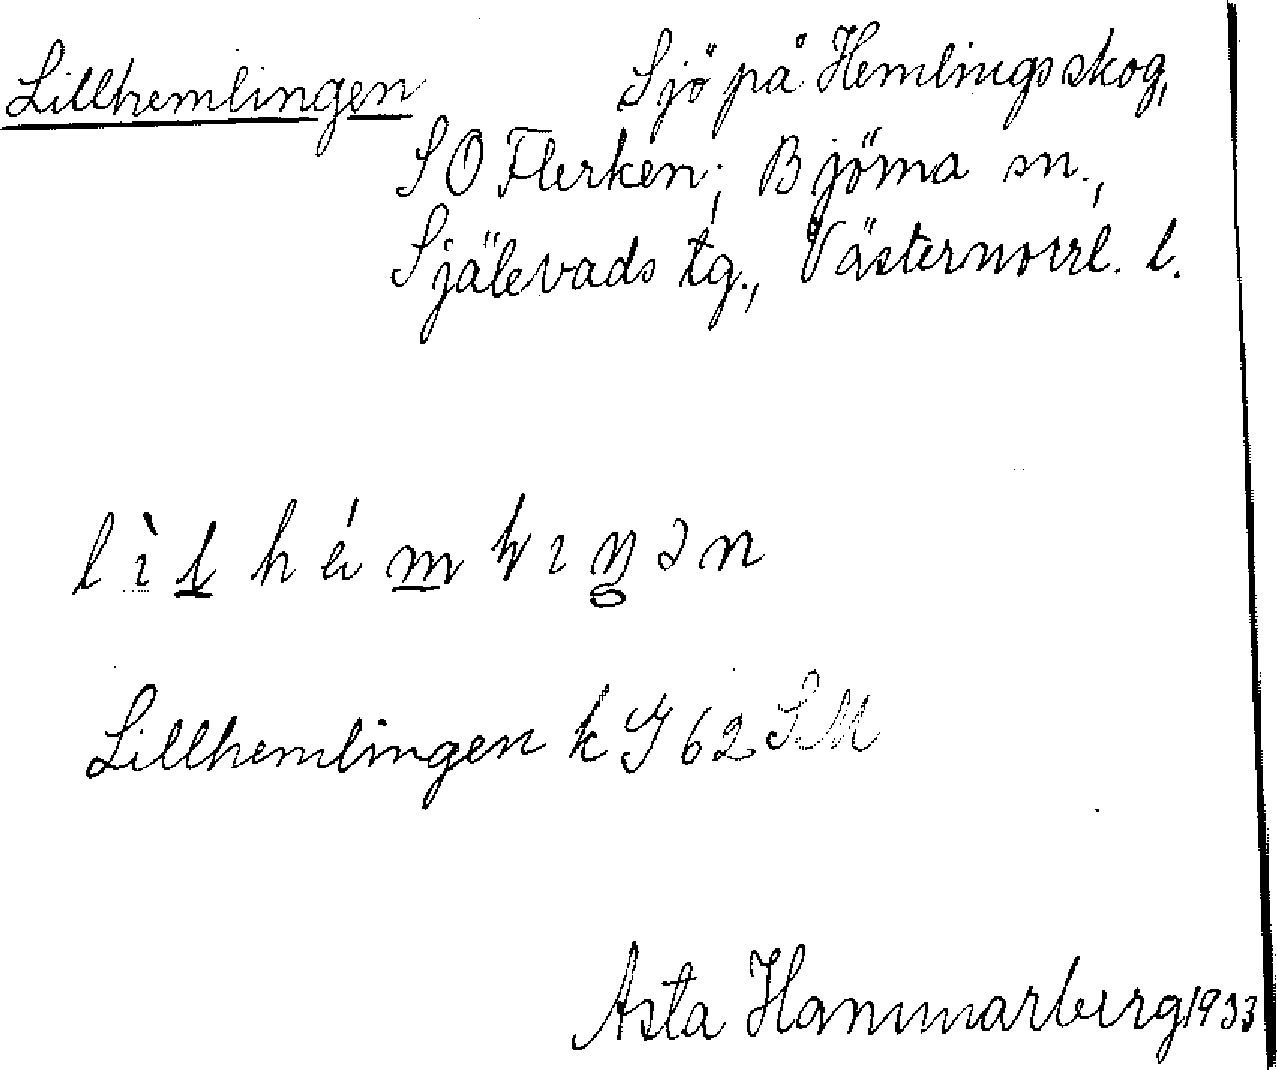 Lillhemlingen Sjö på Hemlingsskog,
SO Flerken; Björna sn.,
Själevads tg., Västernorrl. l.
Lillhemlingen k G 62 SM
Asta Hammarberg 1933